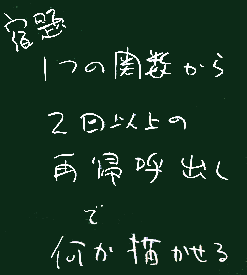 宿題
1つの関数から
2回以上の
再帰呼出し
で
何か描かせる